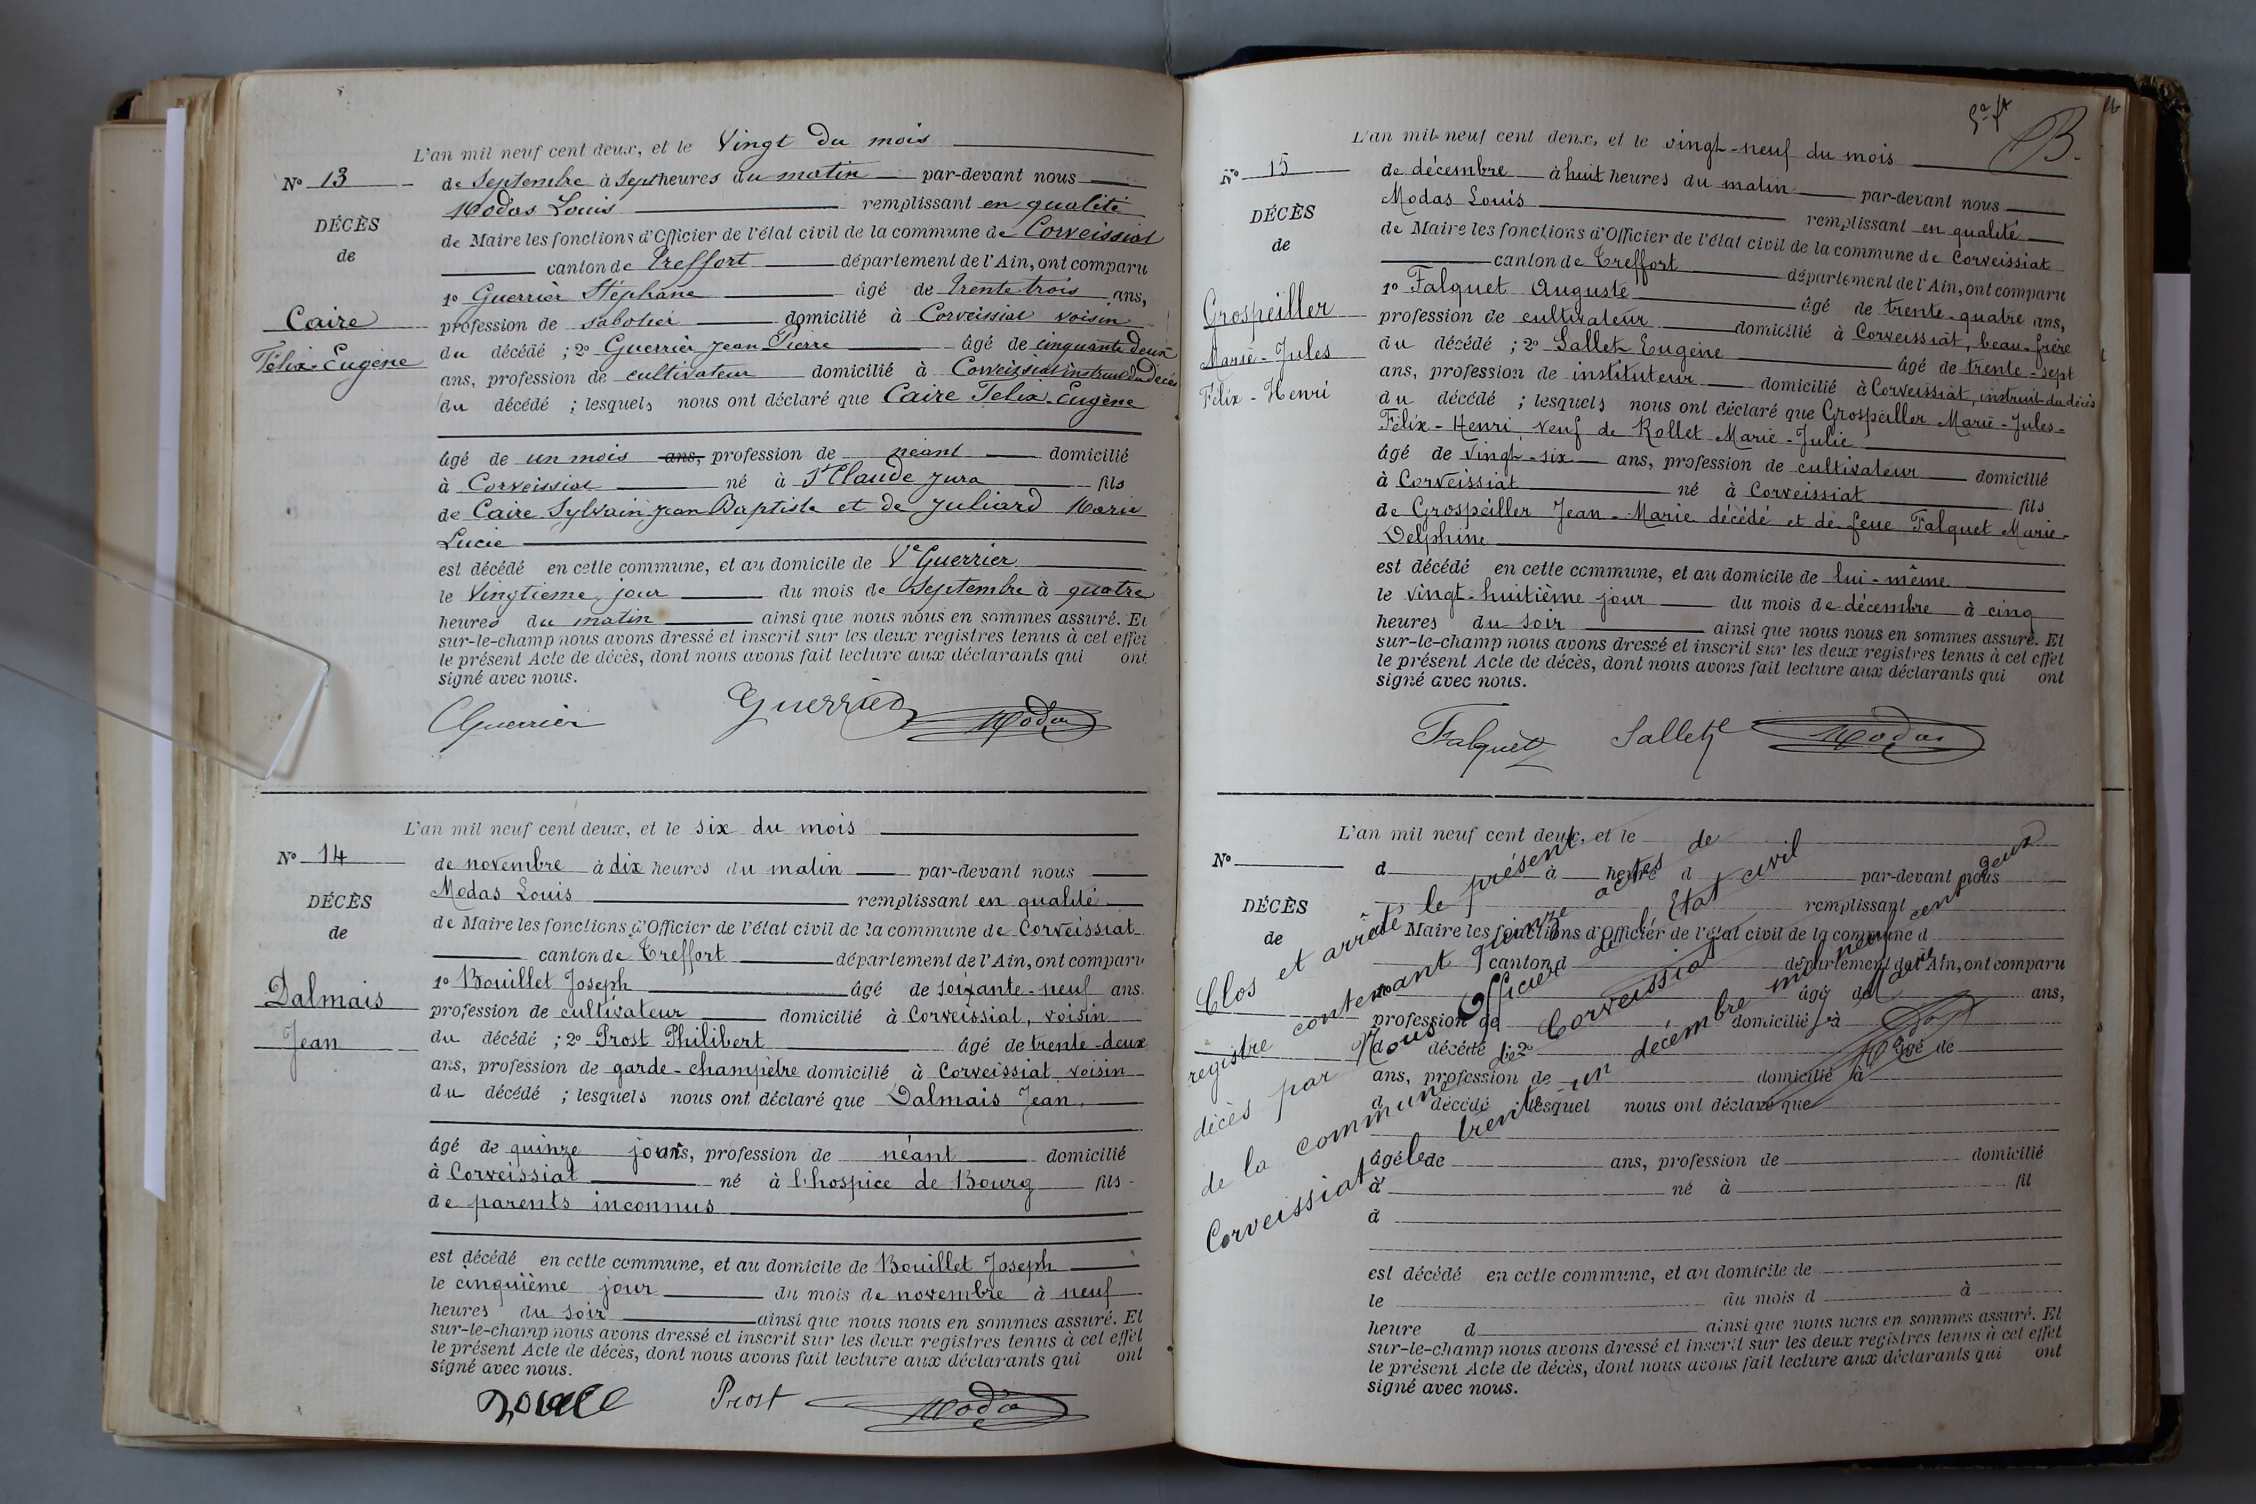 L'an mil neuf cent deux, et le Vingt du mois
N° 13
de Septembre à Sept heures du matin par-devant nous
Modas Louis remplissant en qualité
DÉCÈS
de Maire les fonctions d'Officier de l'état civil de la commune de Corveissiat
de
canton de Treffort département de l'Ain, ont comparu
1° Guerrier Stéphane âgé de trente trois ans,
Caire
profession de sabotier domicilié à Corveissiat voisin
Félix-Eugène
du décédé ; 2° Guerrier Jean Pierre âgé de cinquante deux
ans, profession de cultivateur domicilié à Corveissiat instruit du décès
du décédé ; lesquels nous ont déclaré que Caire Felix-Eugène
âgé de un mois ans, profession de néant domicilié
à Corveissiat né à St Claude Jura fils
de Caire Sylvain Jean Baptiste et de Juliard Marie
Lucie
est décédé en cette commune, et au domicile de Ve Guerrier
le Vingtième jour du mois de Septembre à quatre
heures du matin ainsi que nous nous en sommes assuré. Et
sur-le-champ nous avons dressé et inscrit sur les deux registres tenus à cet effet
le présent Acte de décès, dont nous avons fait lecture aux déclarants qui ont
signé avec nous.
Guerrier Guerrier Modas
L'an mil neuf cent deux, et le six du mois
N° 14
de novembre à dix heures du matin par-devant nous
Modas Louis remplissant en qualité
DÉCÈS
de Maire les fonctions d'Officier de l'état civil de la commune de Corveissiat
de
canton de Treffort département de l'Ain, ont comparu
1° Bouillet Joseph âgé de soixante-neuf ans
Dalmais
profession de cultivateur domicilié à Corveissiat, voisin
Jean
du décédé ; 2° Prost Philibert âgé de trente-deux
ans, profession de garde-champêtre domicilié à Corveissiat voisin
du décédé ; lesquels nous ont déclaré que Dalmais Jean
âgé de quinze jours, profession de néant domicilié
à Corveissiat né à l'hospice de Bourg fils
de parents inconnus
est décédé en cette commune, et au domicile de Bouillet Joseph
le cinquième jour du mois de novembre à neuf
heures du soir ainsi que nous nous en sommes assuré. Et
sur-le-champ nous avons dressé et inscrit sur les deux registres tenus à cet effet
le présent Acte de décès, dont nous avons fait lecture aux déclarants qui ont
signé avec nous.
Prost Modas
L'an mil neuf cent deux, et le vingt-neuf du mois
N° 15
de décembre à huit heures du matin par-devant nous
Modas Louis remplissant en qualité
DÉCÈS
de Maire les fonctions d'Officier de l'état civil de la commune de Corveissiat
de
canton de Treffort département de l'Ain, ont comparu
1° Falquet Auguste âgé de trente-quatre ans,
Grospeiller
profession de cultivateur domicilié à Corveissiat, beau-frère
Marie-Jules
du décédé ; 2° Sallet Eugène âgé de trente-sept
Félix-Henri
ans, profession de instituteur domicilié à Corveissiat, instruit du décès
du décédé ; lesquels nous ont déclaré que Grospeiller Marie-Jules-
Félix-Henri, veuf de Rollet Marie-Julie
âgé de vingt-six ans, profession de cultivateur domicilié
à Corveissiat né à Corveissiat fils
de Grospeiller Jean-Marie décédé et de feue Falquet Marie-
Delphine
est décédé en cette commune, et au domicile de lui-même
le vingt-huitième jour du mois de décembre à cinq
heures du soir ainsi que nous nous en sommes assuré. Et
sur-le-champ nous avons dressé et inscrit sur les deux registres tenus à cet effet
le présent Acte de décès, dont nous avons fait lecture aux déclarants qui ont
signé avec nous.
Falquet Sallet Modas
L'an mil neuf cent deux, et le
N°
d à heure d par-devant nous
DÉCÈS
remplissant
de
Maire les fonctions d'Officier de l'état civil de la commune d
canton d département de l'Ain, ont comparu
1° âgé de ans,
profession de domicilié à
d décédé ; 2° âgé de
ans, profession de domicilié à
d décédé lesquel nous ont déclaré que
âgé de ans, profession de domicilié
à né à fil
d
est décédé en cette commune, et au domicile de
le du mois d à
heure d ainsi que nous nous en sommes assuré. Et
sur-le-champ nous avons dressé et inscrit sur les deux registres tenus à cet effet
le présent Acte de décès, dont nous avons fait lecture aux déclarants qui ont
signé avec nous.
Clos et arrêté le présent
registre contenant quinze actes de
décès par Nous Officier de l'État civil
de la commune de Corveissiat
Corveissiat le trente-un décembre mil neuf cent deux
Le Maire
Modas